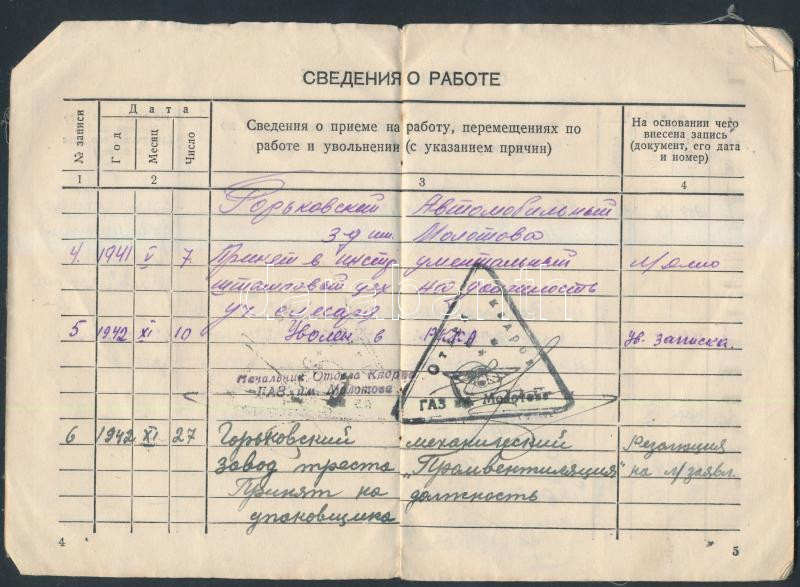 СВЕДЕНИЯ О РАБОТЕ
№ записи
Дата
Год
Месяц
Число
Сведения о приеме на работу, перемещениях по
работе и увольнении (с указанием причин)
На основании чего
внесена запись
(документ, его дата
и номер)
1 2 3 4
Горьковский Автомобильный
з-д им. Молотова
4. 1941 V 7. Принят в инстру ументальный
штамповый цех на должность
уч. слесаря
5 1942 XI 10 Уволен в РККА Ув. записка.
Начальник Отдела Кадров
ГАЗ им. Молотова
Отдел кадров
ГАЗ им. Молотова
6 1942 XI 27 Горьковский механический Резолюция
завод треста „Промвентиляция" на л/заявл.
Принят на должность
упаковщика
4
5
darabanth